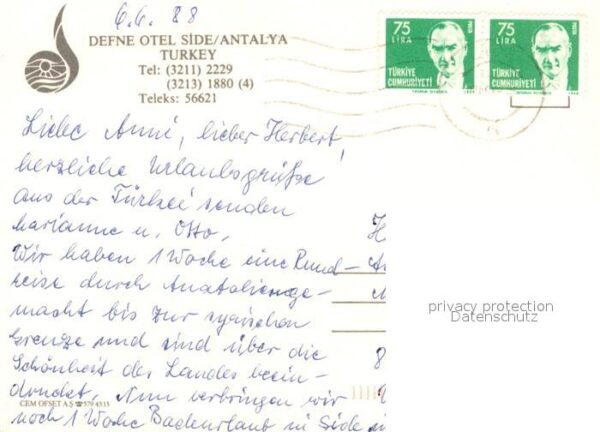 6.6. 88
DEFNE OTEL SİDE/ANTALYA
TURKEY
Tel: (3211) 2229
(3213) 1880 (4)
Teleks: 56621
75
LIRA
TÜRKİYE
CUMHURİYETİ
75
LIRA
TÜRKİYE
CUMHURİYETİ
Liebe Anni, lieber Herbert,
herzliche Urlaubsgrüße
aus der Türkei senden
Marianne u. Otto.
Wir haben 1 Woche eine Rund-
reise durch Anatolien ge-
macht bis zur syrischen
Grenze und sind über die
Schönheit des Landes beein-
druckt. Nun verbringen wir
noch 1 Woche Badeurlaub in Side
H
A
8
privacy protection
Datenschutz
CEM OFSET A.Ş ☎ 579 43 13